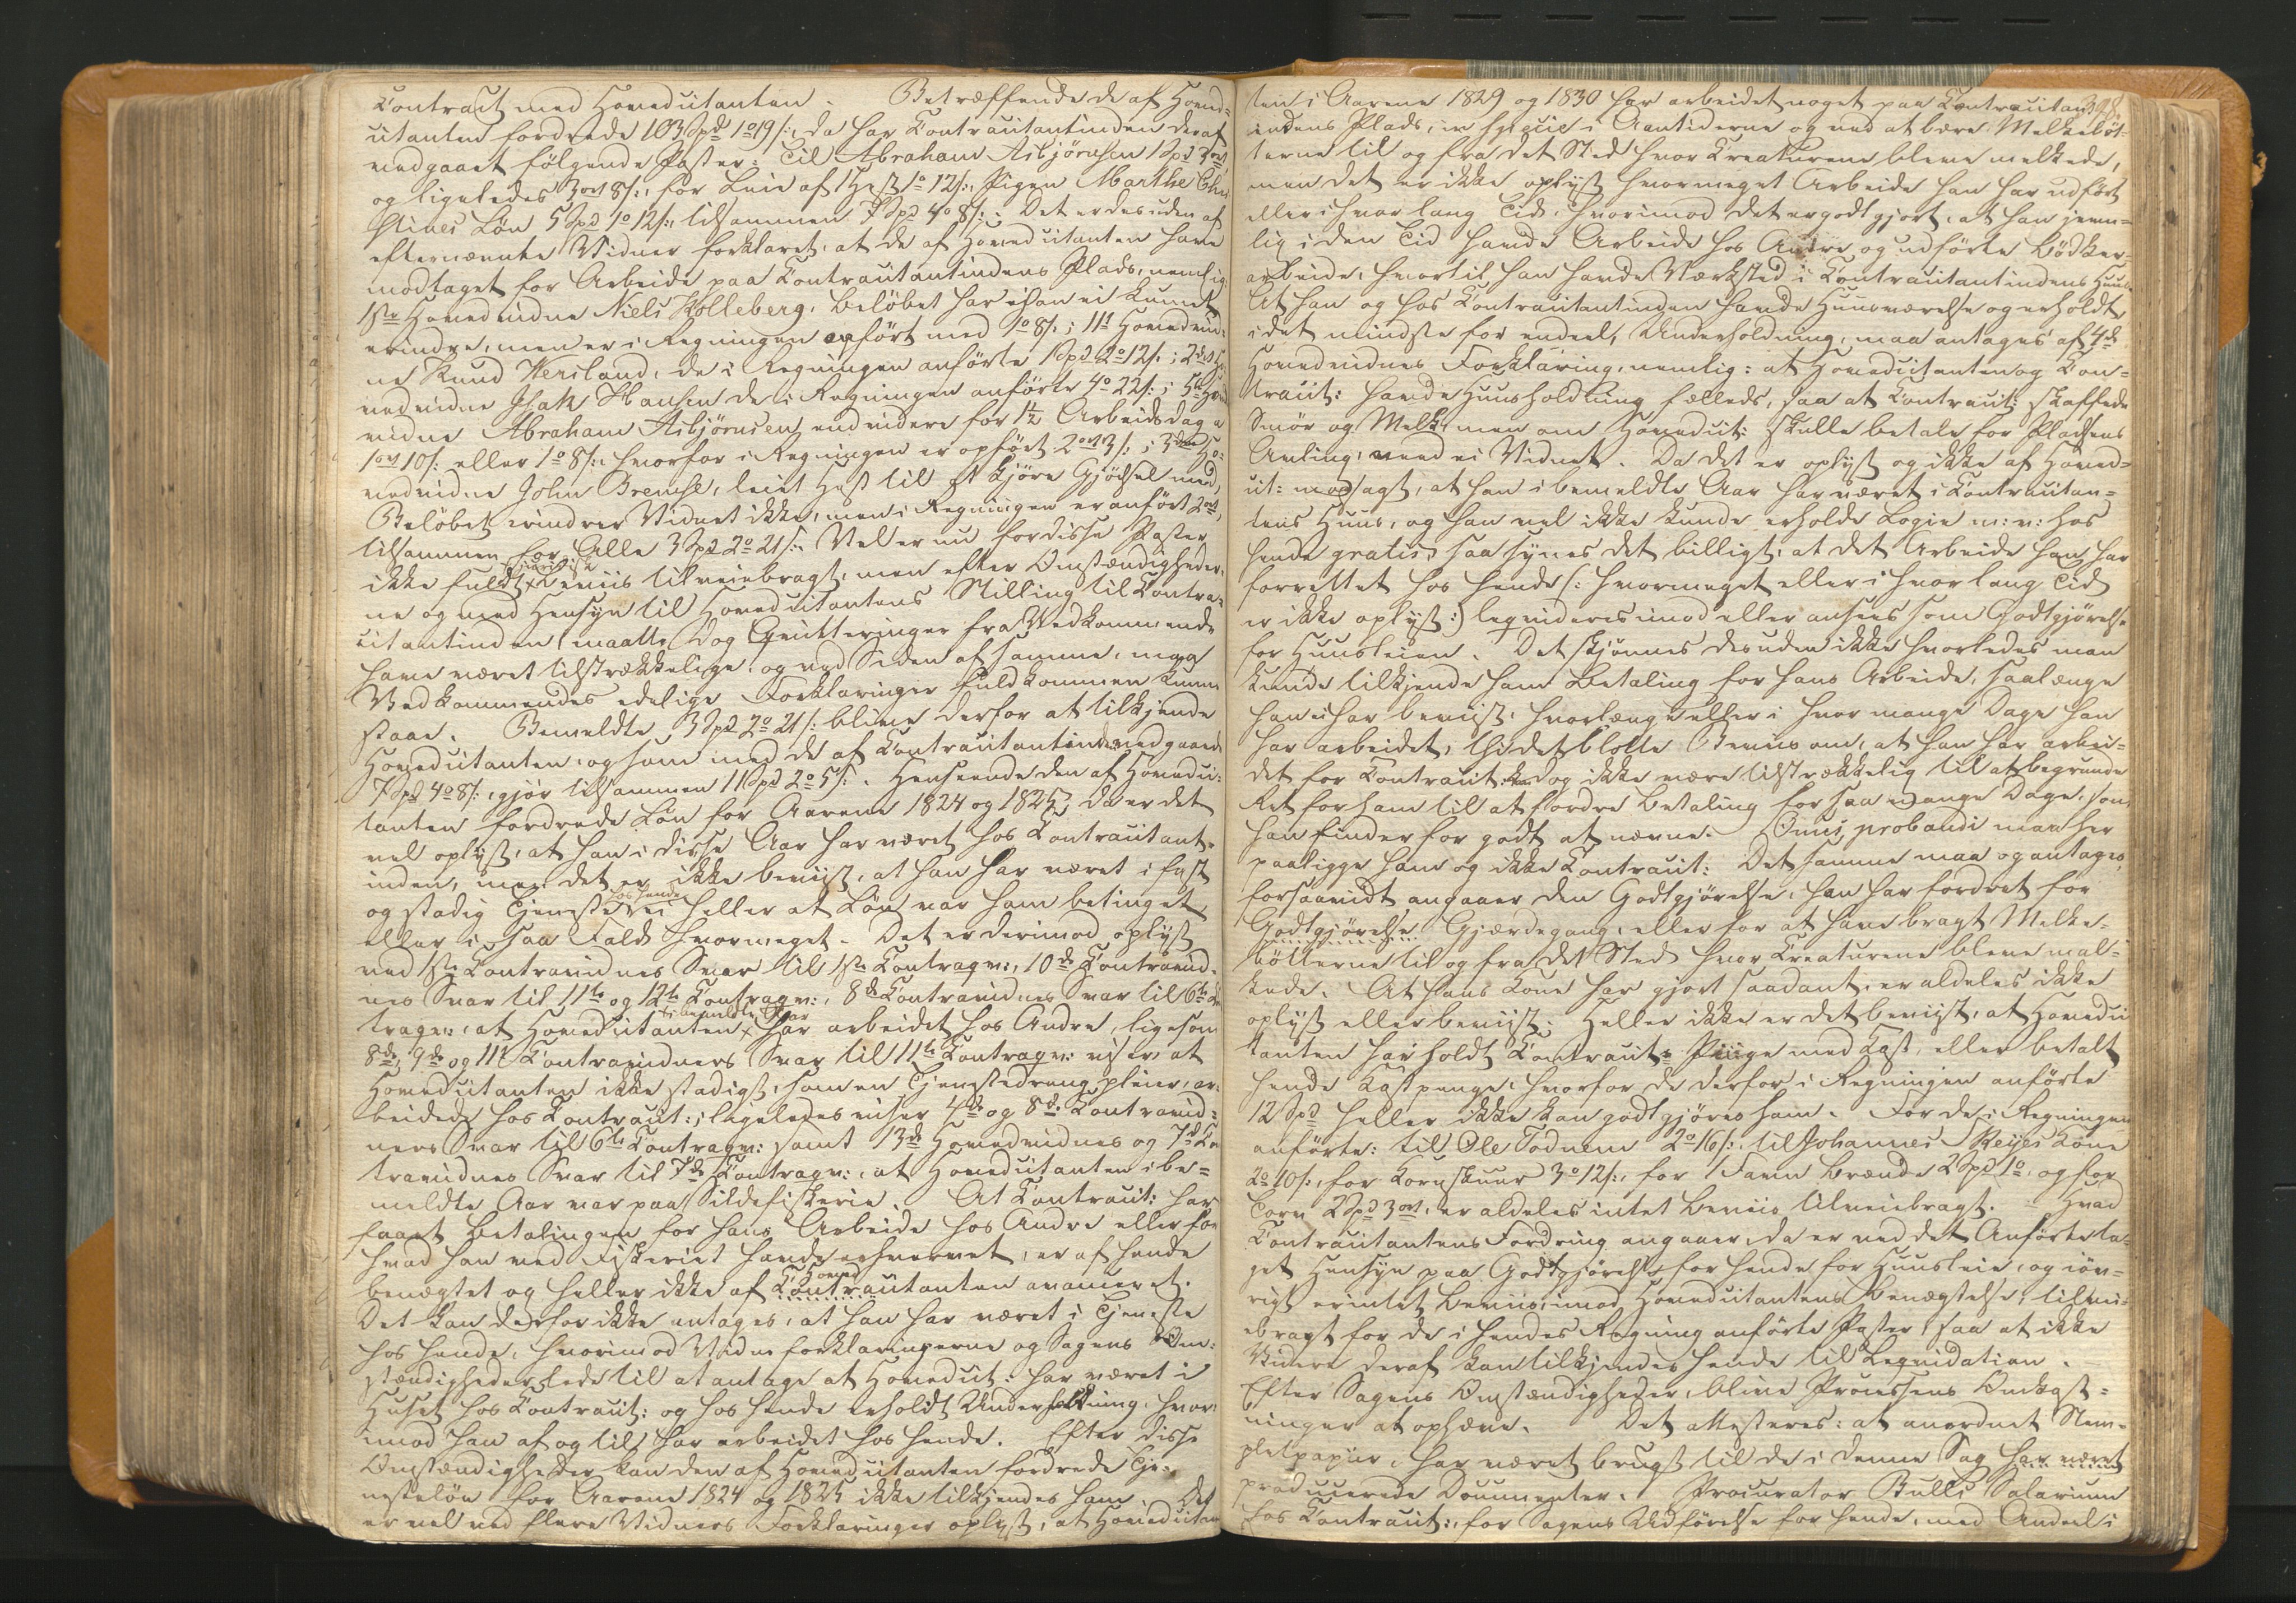 Contract med Hovedcitanten. Betræffende de af Hoved-
citanten fordrede 103 Spd 1o 19 s:, da har Contracitantinden deraf
vedgaaet følgende Poster: Til Abraham Asbjørnsen 1 Spd 3ort
og ligeledes 3ort 8 s:, for Leie af 1 Hest 1o 12 s:, Pigen Marthe
Stines Løn 5 Spd 1o 12 s:, tilsammen 7 Spd 4o 8 s:. Det er desuden af
efternævnte Vidner forklaret, at de af Hovedcitanten have
modtaget for Arbeide paa Contracitantindens Plads, nemlig:
1ste Hovedvidne Niels Kolleberg, beløbet har han ei kunnet
erindre, men er i Regningen opført med 1o 8 s:; 11te Hovedvid-
ne Knud Hersland, de i Regningen anførte 1 Spd 2o 12 s:; 2det Ho-
vedvidne Isak Hansen de i Regningen anførte 4o 22 s:; 5te Hoved
vidne Abraham Asbjørnsen endvidere for 1½ Arbeidsdag a
1ort 10 s: eller 1o 8 s:, hvorfor i Regningen er opført 2ort 3 s:; 3die Ho-
vedvidne John Bremse, leiet Hest til at kjøre Gjødsel med,
Beløbet erindrer Vidnet ikke, men i Regningen er anført 2ort,
tilsammen for Alle 3 Spd 2o 21 s:. Vel er nu for disse Poster
ikke fuldt juridisk Beviis tilveiebragt, men efter Omstændigheder-
ne og med Hensyn til Hovedcitantens Stilling til Contra-
citantinden maatte dog Qvitteringer fra Vedkommende
have været tilstrækkelige, og ved Siden af samme, maa
Vedkommendes edelige Forklaringer fuldkommen kunne
staae. Bemeldte 3 Spd 2o 21 s: blive derfor at tilkjende
Hovedcitanten, og som med de af Contracitantinden vedgaaede
7 Spd 4o 8 s:, gjør tilsammen 11 Spd 2o 5 s:. Henseende den af Hovedci-
tanten fordrede Løn for Aarene 1824 og 1825, da er det
vel oplyst, at han i disse Aar har været hos Contracitant-
inden, men det er ikke beviist, at han har været i fast
og stadig Tjeneste hos hende, ei heller at Løn var ham betinget,
eller i saa Fald hvormeget. Det er derimod oplyst
ved 1ste Contravidnes Svar til 1ste Contraqv:, 10de Contravid-
nes Svar til 11te og 12te Contraqv:, 8de Contravidnes Svar til 6te Con
traqv:, at Hovedcitanten i bemeldte Aar har arbeidet hos Andre, ligesom
8de, 9de og 11te Contravidners Svar til 11te Contraqv: viser, at
Hovedcitanten ikke stadigt, som en Tjenestedreng pleier, ar-
beidede hos Contracit:; ligeledes viser 4de og 8de Contravid-
ners Svar til 6te Contraqv: samt 13de Hovedvidnes og 7de Con
travidnes Svar til 7de Contraqv:, at Hovedcitanten i be-
meldte Aar var paa Sildefiskerie. At Contracit: har
faaet Betalingen for hans Arbeide hos Andre eller for
hvad han ved Fiskeriet havde erhvervet, er af hende
benægtet og heller ikke af Hoved Contracitanten avanceret.
Det kan derfor ikke antages, at han har været i Tjeneste
hos hende, hvorimod Vidneforklaringerne og Sagens Om-
stændigheder lede til at antage at Hovedcit: har været i
Huset hos Contracit: og hos hende erholdt Underholdning, hvor-
imod han af og til har arbeidet hos hende. Efter disse
Omstændigheder kan den af Hovedcitanten fordrede Tje-
nesteløn for Aarene 1824 og 1825 ikke tilkjendes ham. Det
er vel ved flere Vidners Forklaringer oplyst, at Hovedcitan
398
ten i Aarene 1829 og 1830 har arbeidet noget paa Contracitant-
indens Plads, in specie i Aantiderne og ved at bære Melkebøt-
terne til og fra det Sted hvor Creaturene bleve melkede,
men det er ikke oplyst hvormeget Arbeide han har udført
eller i hvor lang Tid, hvorimod det er godtgjort, at han jevn-
lig i den Tid havde Arbeide hos Andre og udførte Bødker-
arbeide, hvortil han havde Værksted i Contracitantindens Huus.
At han og hos Contracitantinden havde Huusværelse og erholdt,
i det mindste for endeel, Underholdning, maa antages af 4de
Hovedvidnes Forklaring, nemlig: at Hovedcitanten og Con-
tracit: havde Huusholdning fælleds, saa at Contracit: skaffede
Smør og Melk, men om Hovedcit: skulle betale for Pladsens
Avling, veed ei Vidnet. Da det er oplyst og ikke af Hoved-
cit: modsagt, at han i bemeldte Aar har været i Contracitan-
tens Huus, og han vel ikke kunde erholde Logie m: v: hos
hende gratis, saa synes det billigt, at det Arbeide han har
forrettet hos hende /: hvormeget eller i hvor lang Tid
er ikke oplyst :/ leqvideres imod eller ansees som Godtgjørelse
for Huusleien. Det skjønnes desuden ikke hvorledes man
kunde tilkjende ham Betaling for hans Arbeide, saalænge
han ei har beviist, hvorlænge eller i hvor mange Dage han
har arbeidet, thi det blotte Beviis om, at han har arbei-
det for Contracit: kan dog ikke være tilstrækkelig til at begrunde
Ret for ham til at fordre Betaling for saa mange Dage, som
han finder for godt at nævne. Onus probandi maa her
paaligge ham og ikke Contracit: Det samme maa og antages,
forsaavidt angaaer den Godtgjørelse, han har fordret for
Godtgjørelse Gjærdegang, eller for at have bragt Melke-
bøtterne til og fra det Sted hvor Creaturene bleve mel-
kede. At hans Kone har gjort saadant, er aldeles ikke
oplyst eller beviist; Heller ikke er det beviist, at Hovedci
tanten har holdt Contracit:s Piige med Kost, eller betalt
hende Kostpenge, hvorfor de derfor i Regningen anførte
12 Spd heller ikke kan godtgjøres ham. For de i Regningen
anførte: til Ole Todnem 2o 16 s:, til Johannes Reijes Kone
2o 10 s:, for Kornskuur 3o 12 s:, for 1 Favn Brænde 2 Spd 1o, og for
Torv 2 Spd 3ort, er aldeles intet Beviis tilveiebragt. Hvad
Contracitantens Fordring angaaer, da er ved det Anførte ta-
get Hensyn paa Godtgjørelse for hende for Huusleie, og iøv-
rigt er intet Beviis, imod Hovedcitantens Benægtelse, tilvei-
ebragt for de i hendes Regning anførte Poster, saa at ikke
Videre deraf kan tilkjendes hende til Leqvidation.
Efter Sagens Omstændigheder, blive Processens Omkost-
ninger at ophæve. Det attesteres: at anordnet Stem-
pletpapiir, har været brugt til de i denne Sag har været
producerede Documenter. Procurator Bulls Salarium
hos Contracit:, for Sagens Udførelse for hende, med Andeel i